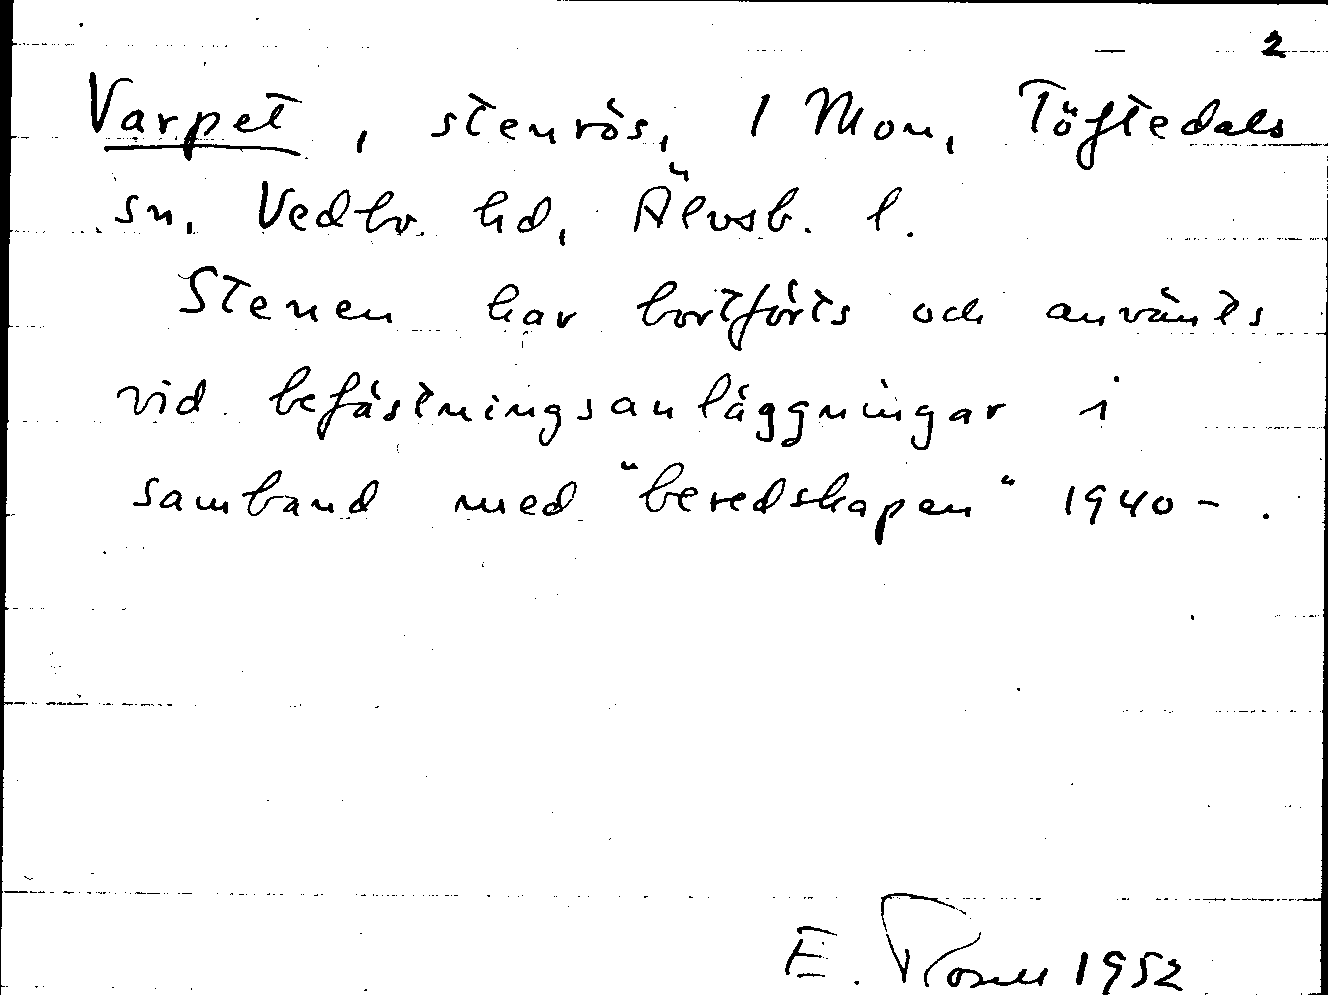 2
Varpet, stenrös, 1 Mon, Töftedals
sn. Vedbo. hd, Älvsb. l.
Stenen har bortförts och använts
vid befästningsanläggningar i
samband med "beredskapen" 1940-.
E. Rosell 1952